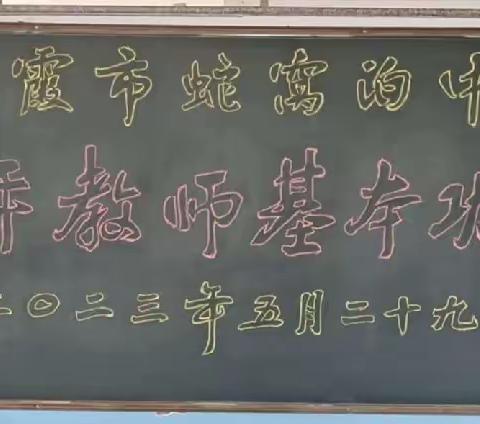 霞市蛇窝泊中
教师基本功
二〇二三年五月二十九